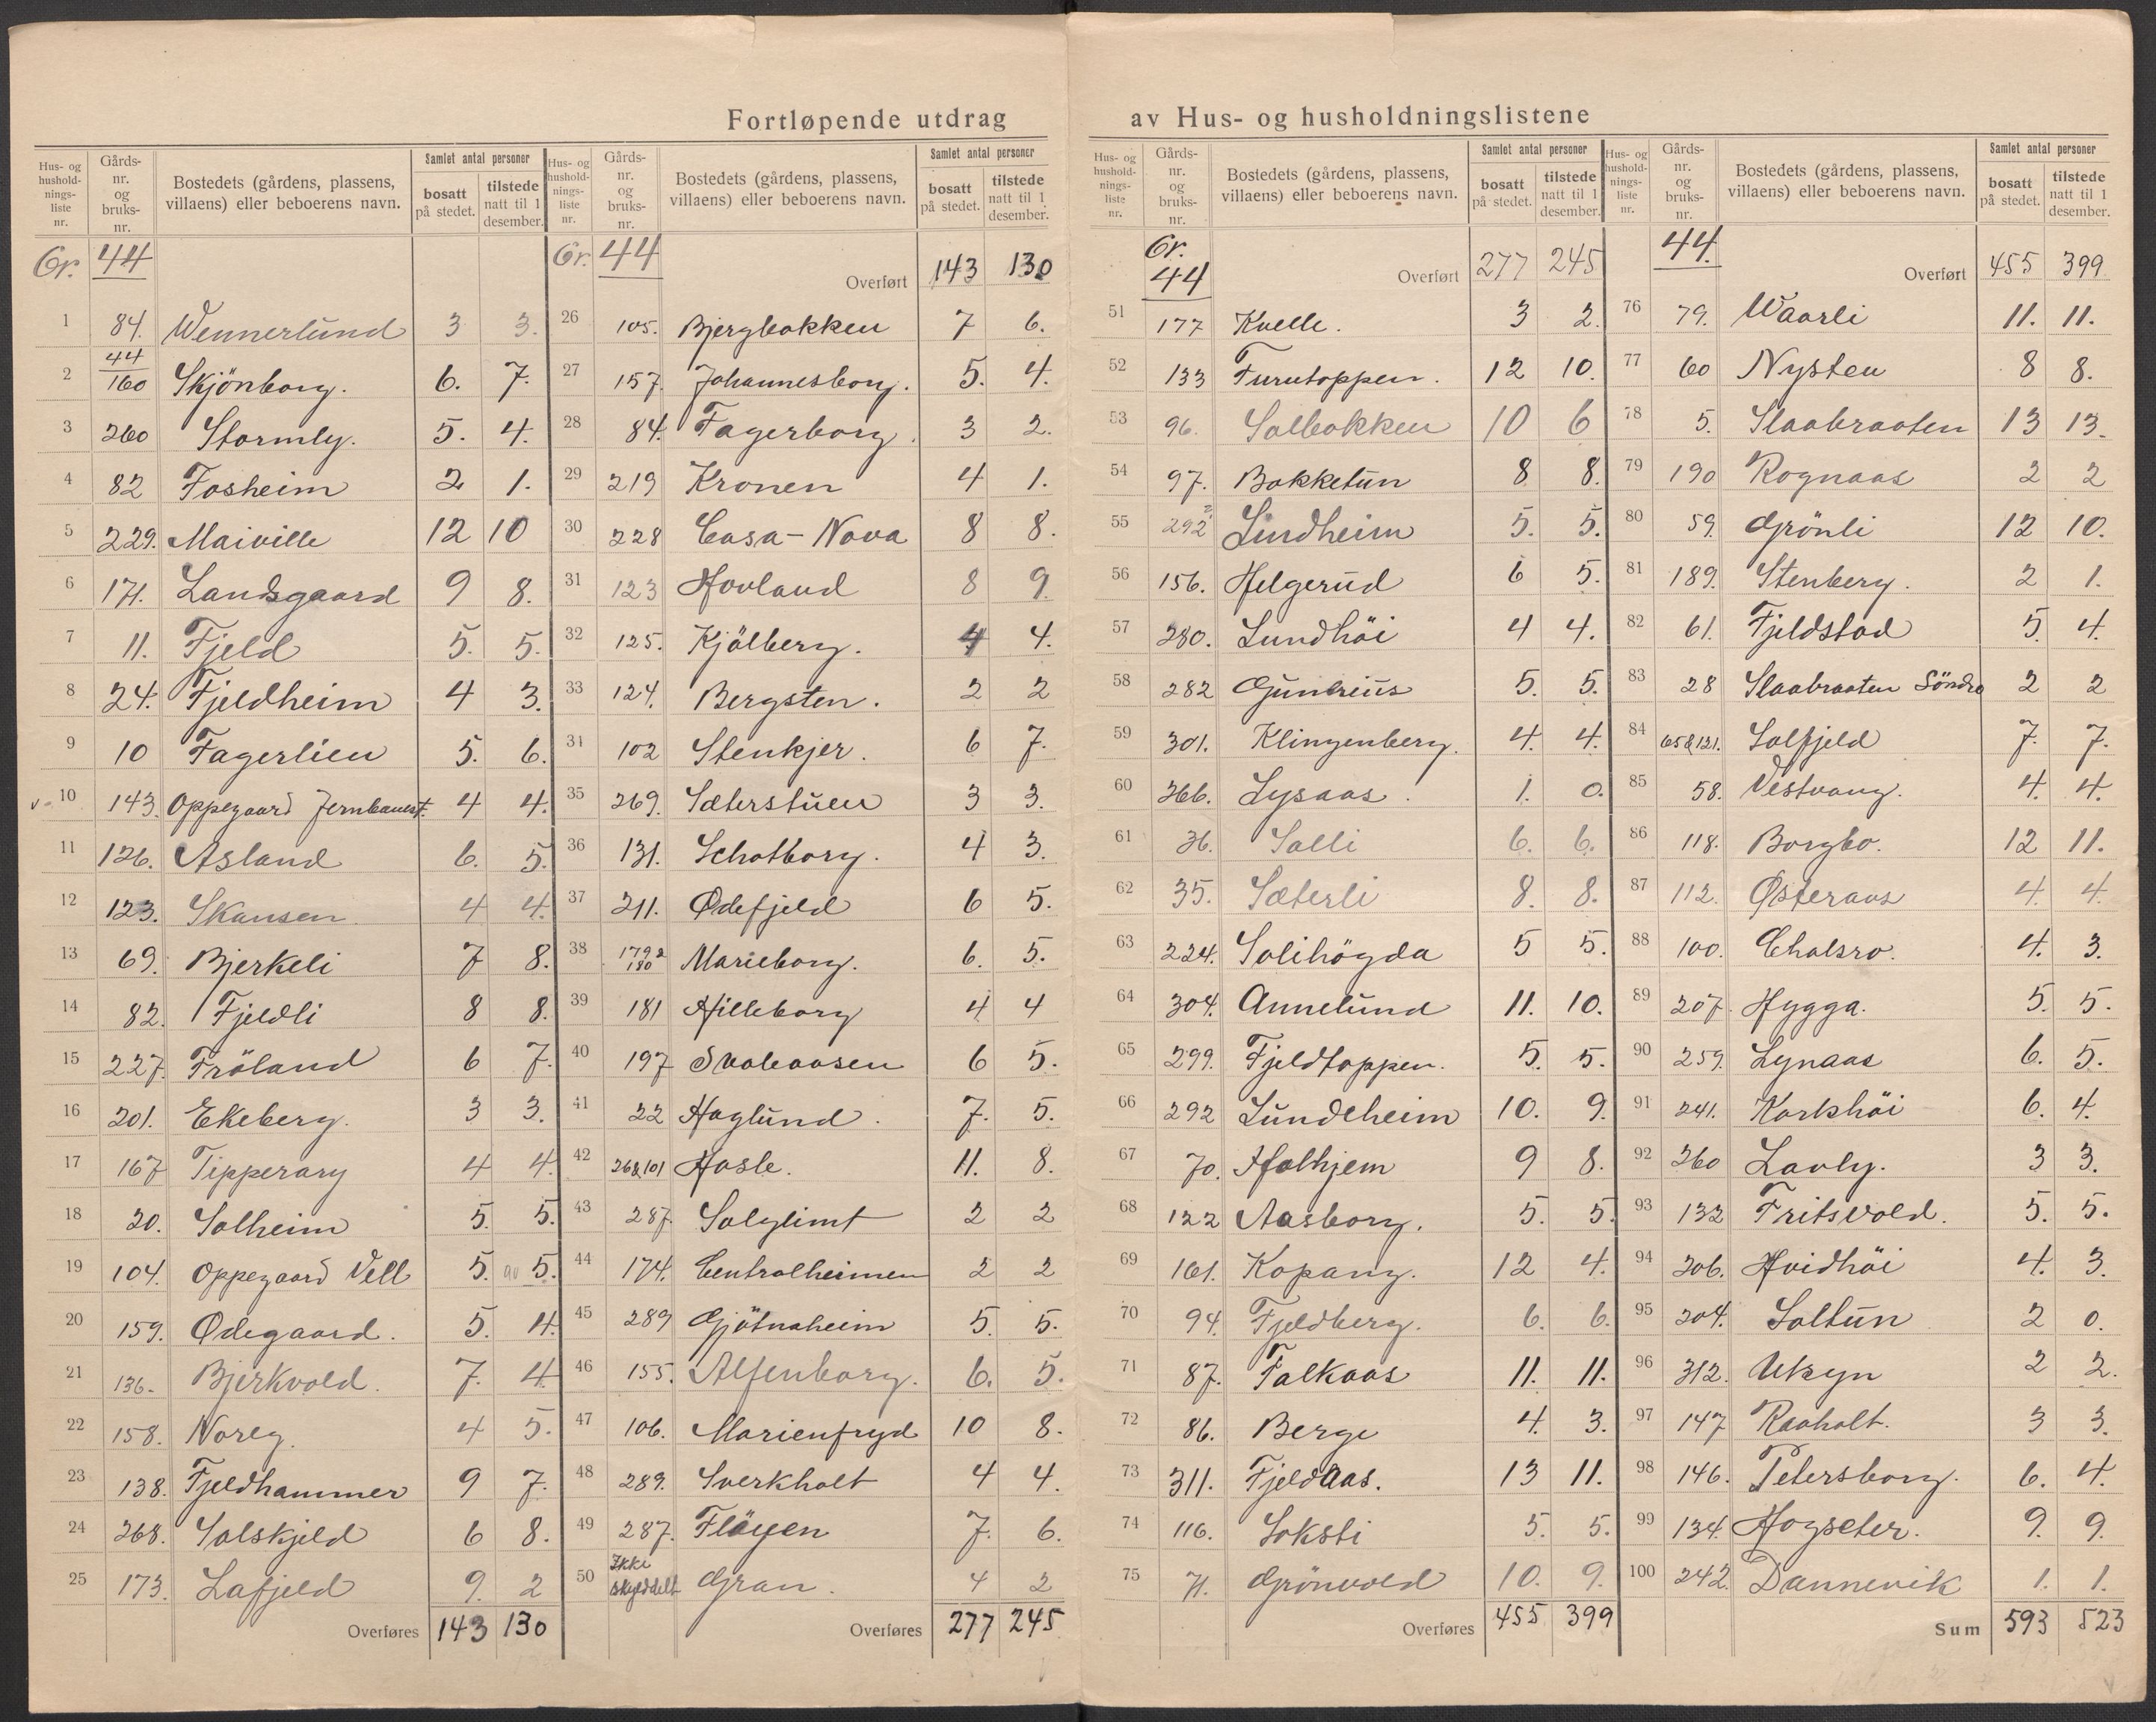 Fortløpende utdrag av Hus- og husholdningslistene
Hus- og husholdnings-liste nr. | Gårds-nr. og bruks-nr. | Bostedets (gårdens, plassens, villaens) eller beboerens navn. | Samlet antal personer | bosatt på stedet. | tilstede natt til 1 desember.
Gr. 44
1 84. Wennerlund 3 3.
2 44/160 Skjönborg. 6. 7.
3 260 Stormly. 5. 4.
4 82 Fosheim 2 1.
5 229. Maiville 12 10
6 171. Landsgaard 9 8.
7 11. Fjeld 5. 5.
8 24. Fjeldheim 4 3.
9 10 Fagerlien 5. 6.
v- 10 143. Oppegaard Jernbanest. 4 4.
11 126. Asland 6. 5.
12 123. Skansen. 4 4.
13 69. Bjerkeli 7 8.
14 82. Fjeldli 8 8.
15 227. Fröland 6 7.
16 201. Ekeberg. 3 3.
17 167 Tipperary 4 4.
18 20. Solheim 5. 5.
19 104. Oppegaard Vell 5. 5.
20 159. Ødegaard. 5. 4.
21 136. Bjerkvold. 7. 4
22 158. Noreg. 4 5.
23 138. Fjeldhammer 9 7.
24 268. Solskjeld 6 8.
25 173. Lafjeld 9. 2
Overføres 143 130
Gr. 44
Overført 143 130
26 105. Bjergbakken 7 6.
27 157. Johannesborg. 5. 4.
28 84. Fagerborg. 3 2.
29 219 Kronen 4 1.
30 228 Casa-Nova 8 8.
31 123 Hovland 8 9.
32 125. Kjölberg. 4 4.
33 124. Bergsten. 2 2
34 102 Stenkjer. 6 7.
35 269. Sæterstuen 3 3.
36 131. Schotborg. 4 3.
37 211. Ødefjeld 6 5.
38 179 & 180 Marieborg. 6. 5.
39 181 Hilleborg 4 4
40 197 Svaleaasen 6 5.
41 22 Haglund. 7. 5.
42 26 & 101 Hasle. 11. 8.
43 287. Solglimt 2 2
44 174. Centralheimen 2 2
45 289 Gjötnaheim 5. 5.
46 155. Alfenborg. 6. 5.
47 106. Marienfryd 10 8.
48 289. Sverkholt 4 4.
49 287. Fløyen 7. 6.
50 Ikke skylddelt Gran. 4 2
Overføres 277 245
Gr. 44
Overført 277 245
51 177 Kvelle. 3 2.
52 133 Furutoppen. 12 10.
53 96. Solbakken 10 6
54 97. Bakketun 8 8.
55 292 Lindheim 5. 5.
56 156. Helgerud 6 5.
57 280. Lundhöi 4 4.
58 282 Gunerius 5. 5.
59 301. Klingenberg. 4. 4.
60 266. Lysaas. 1. 0.
61 36. Solli 6. 6.
62 35. Sæterli 8. 8.
63 224. Solihögda 5 5.
64 304. Annelund 11. 10.
65 299. Fjeldtoppen. 5. 5.
66 292 Lundeheim 10. 9.
67 70. Holhjem 9 8.
68 122 Aasborg. 5. 5.
69 161. Kopang. 12 4.
70 94. Fjeldberg. 6. 6.
71 87. Falkaas 11. 11.
72 86. Berge 4. 3.
73 311. Fjeldaas. 13 11.
74 116. Soksti 5. 5.
75 71. Grönvold 10. 9.
Overføres 455 399
44.
Overført 455 399
76 79. Waarli 11. 11.
77 60 Nysten 8 8.
78 5. Slaabraaten 13 13.
79 190 Rognaas 2 2
80 59. Grönli 12 10.
81 189. Stenberg. 2 1.
82 61. Fjeldstad 5. 4.
83 28 Slaabraaten Söndre 2 2
84 65 & 121. Solfjeld 7. 7.
85 58. Vestvang. 4. 4.
86 118. Borgbo. 12 11.
87 112. Østeraas 4. 4.
88 100. Chalsro. 4. 3.
89 207. Hygga. 5. 5.
90 259. Lynaas 6. 5.
91 241. Korkhöi 6. 4.
92 260 Lavly. 3 3.
93 132 Fritsvold. 5. 5.
94 206. Hvidhöi 4. 3.
95 204. Soltun 2 0.
96 312. Utsyn 2 2.
97 147 Raaholt. 3 3.
98 146. Petersborg. 6. 4.
99 134. Hogseter. 9. 9.
100 242. Dannevik 1. 1.
Sum 593 523